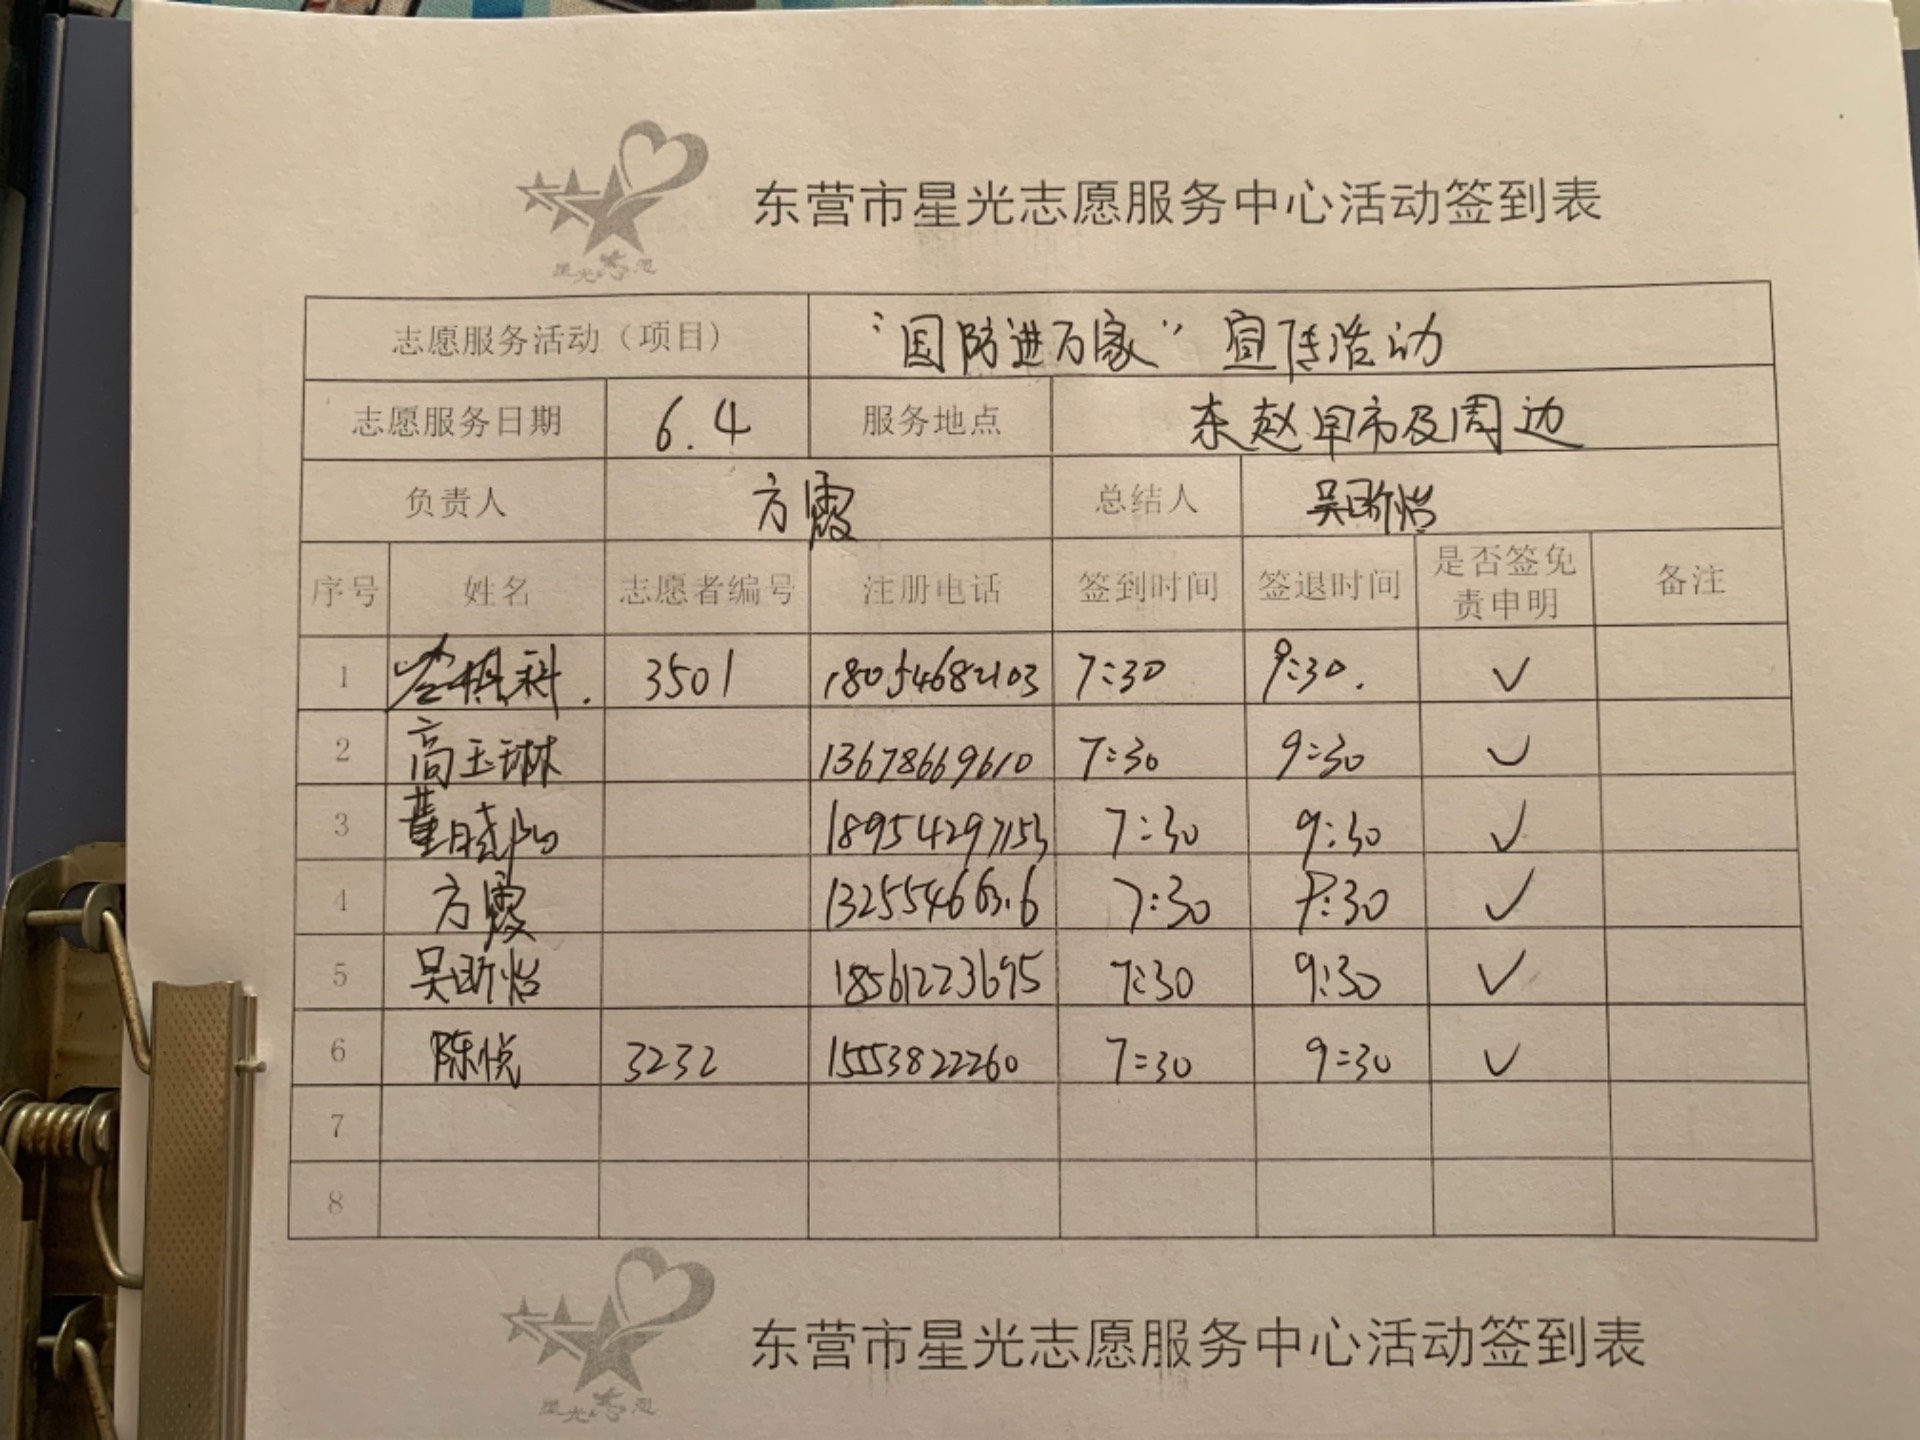 东营市星光志愿服务中心活动签到表
星光志愿
志愿服务活动（项目） “国防进万家”宣传活动
志愿服务日期 6.4 服务地点 东赵早市及周边
负责人 方霞 总结人 吴昕怡
序号 姓名 志愿者编号 注册电话 签到时间 签退时间 是否签免责申明 备注
1 3501 18054682103 7:30 9:30.
2 高玉琳 13678669610 7:30 9:30
3 董晓阳 18954297153 7:30 9:30
4 方霞 7:30 9:30
5 吴昕怡 18561223695 7:30 9:30
6 陈悦 3232 15553822260 7:30 9:30
7
8
东营市星光志愿服务中心活动签到表
星光志愿